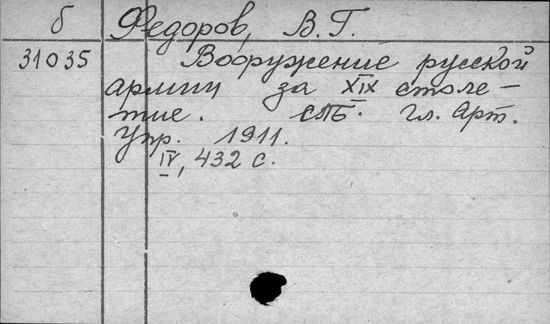 б Федоров, В.Г.
31035 Вооружение русской
армии за XIX столе-
тие. СПБ. Гл. Арт.
Упр. 1911.
IV, 432 с.